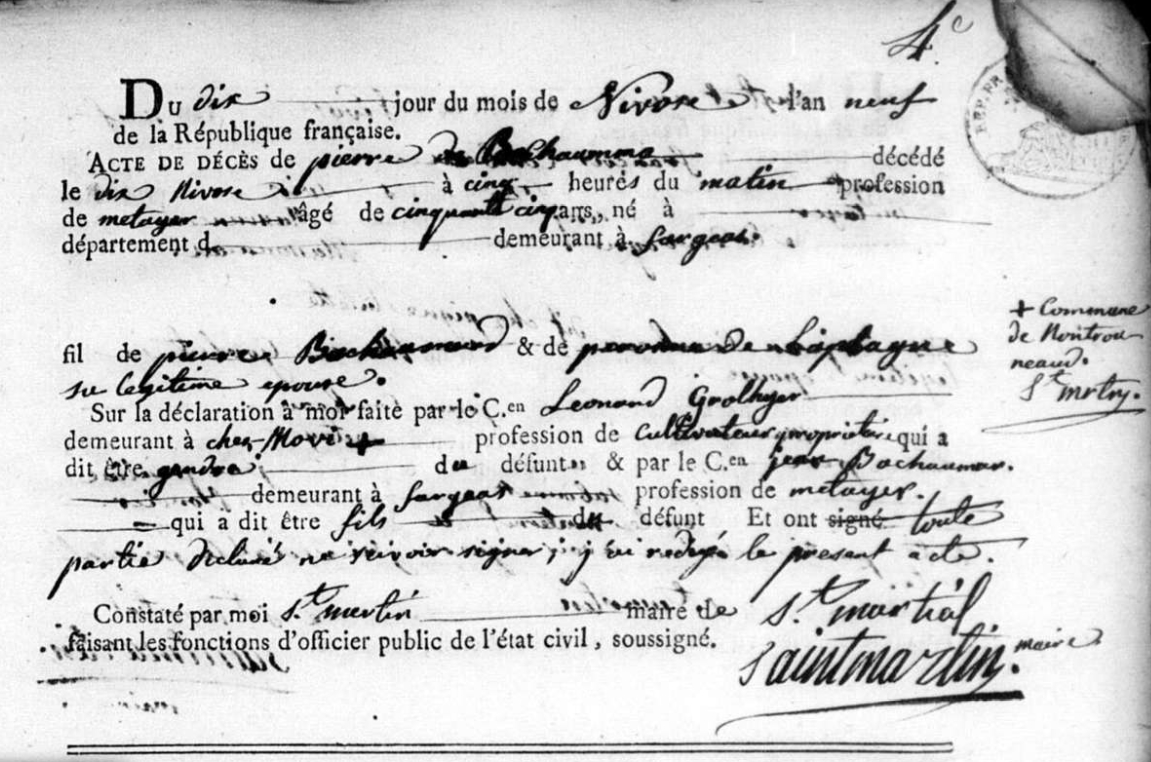 4.e
DU dix jour du mois de Nivose l'an neuf
de la République française.
ACTE DE DÉCÈS de pierre Bachaumme décédé
le dix Nivose à cinq heures du matin profession
de metayer âgé de cinquante cinq ans, né à
département d demeurant à fargeas.
fil de pierre Bachaumard & de peronne de
sa legitime epouse.
+ Commune
de Montrou-
neaud.
St. mrtny.
Sur la déclaration à moi faite par le C.en Leonard Grolhyer
demeurant à chez-Movi + profession de cultivateur propriétere qui a
dit être gendre du défunt & par le C.en jean Bachaumar.
demeurant à fargeas profession de metayer.
qui a dit être fils du défunt Et ont signé toute
partie declaré ne scavoir signer, j'ai redigé le present acte.
Constaté par moi St. martin maire de St. martial
faisant les fonctions d'officier public de l'état civil, soussigné.
saintmartin. maire
REP. FR